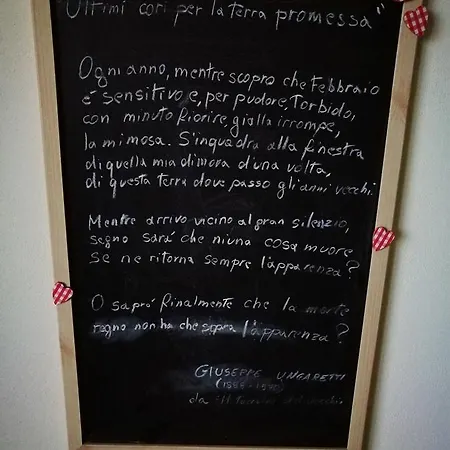 Ultimi cori per la terra promessa"
Ogni anno, mentre scopro che Febbraio
é sensitivo e, per pudore, torbido,
con minuto fiorire, gialla irrompe,
la mimosa. S'inquadra alla finestra
di quella mia dimora d'una volta,
di questa terra dove passo gli anni vecchi.
Mentre arrivo vicino al gran silenzio,
segno sará che niuna cosa muore
se ne ritorna sempre l'apparenza?
O sapró finalmente che la morte
regno non ha che sopra l'apparenza?
GIUSEPPE UNGARETTI
da